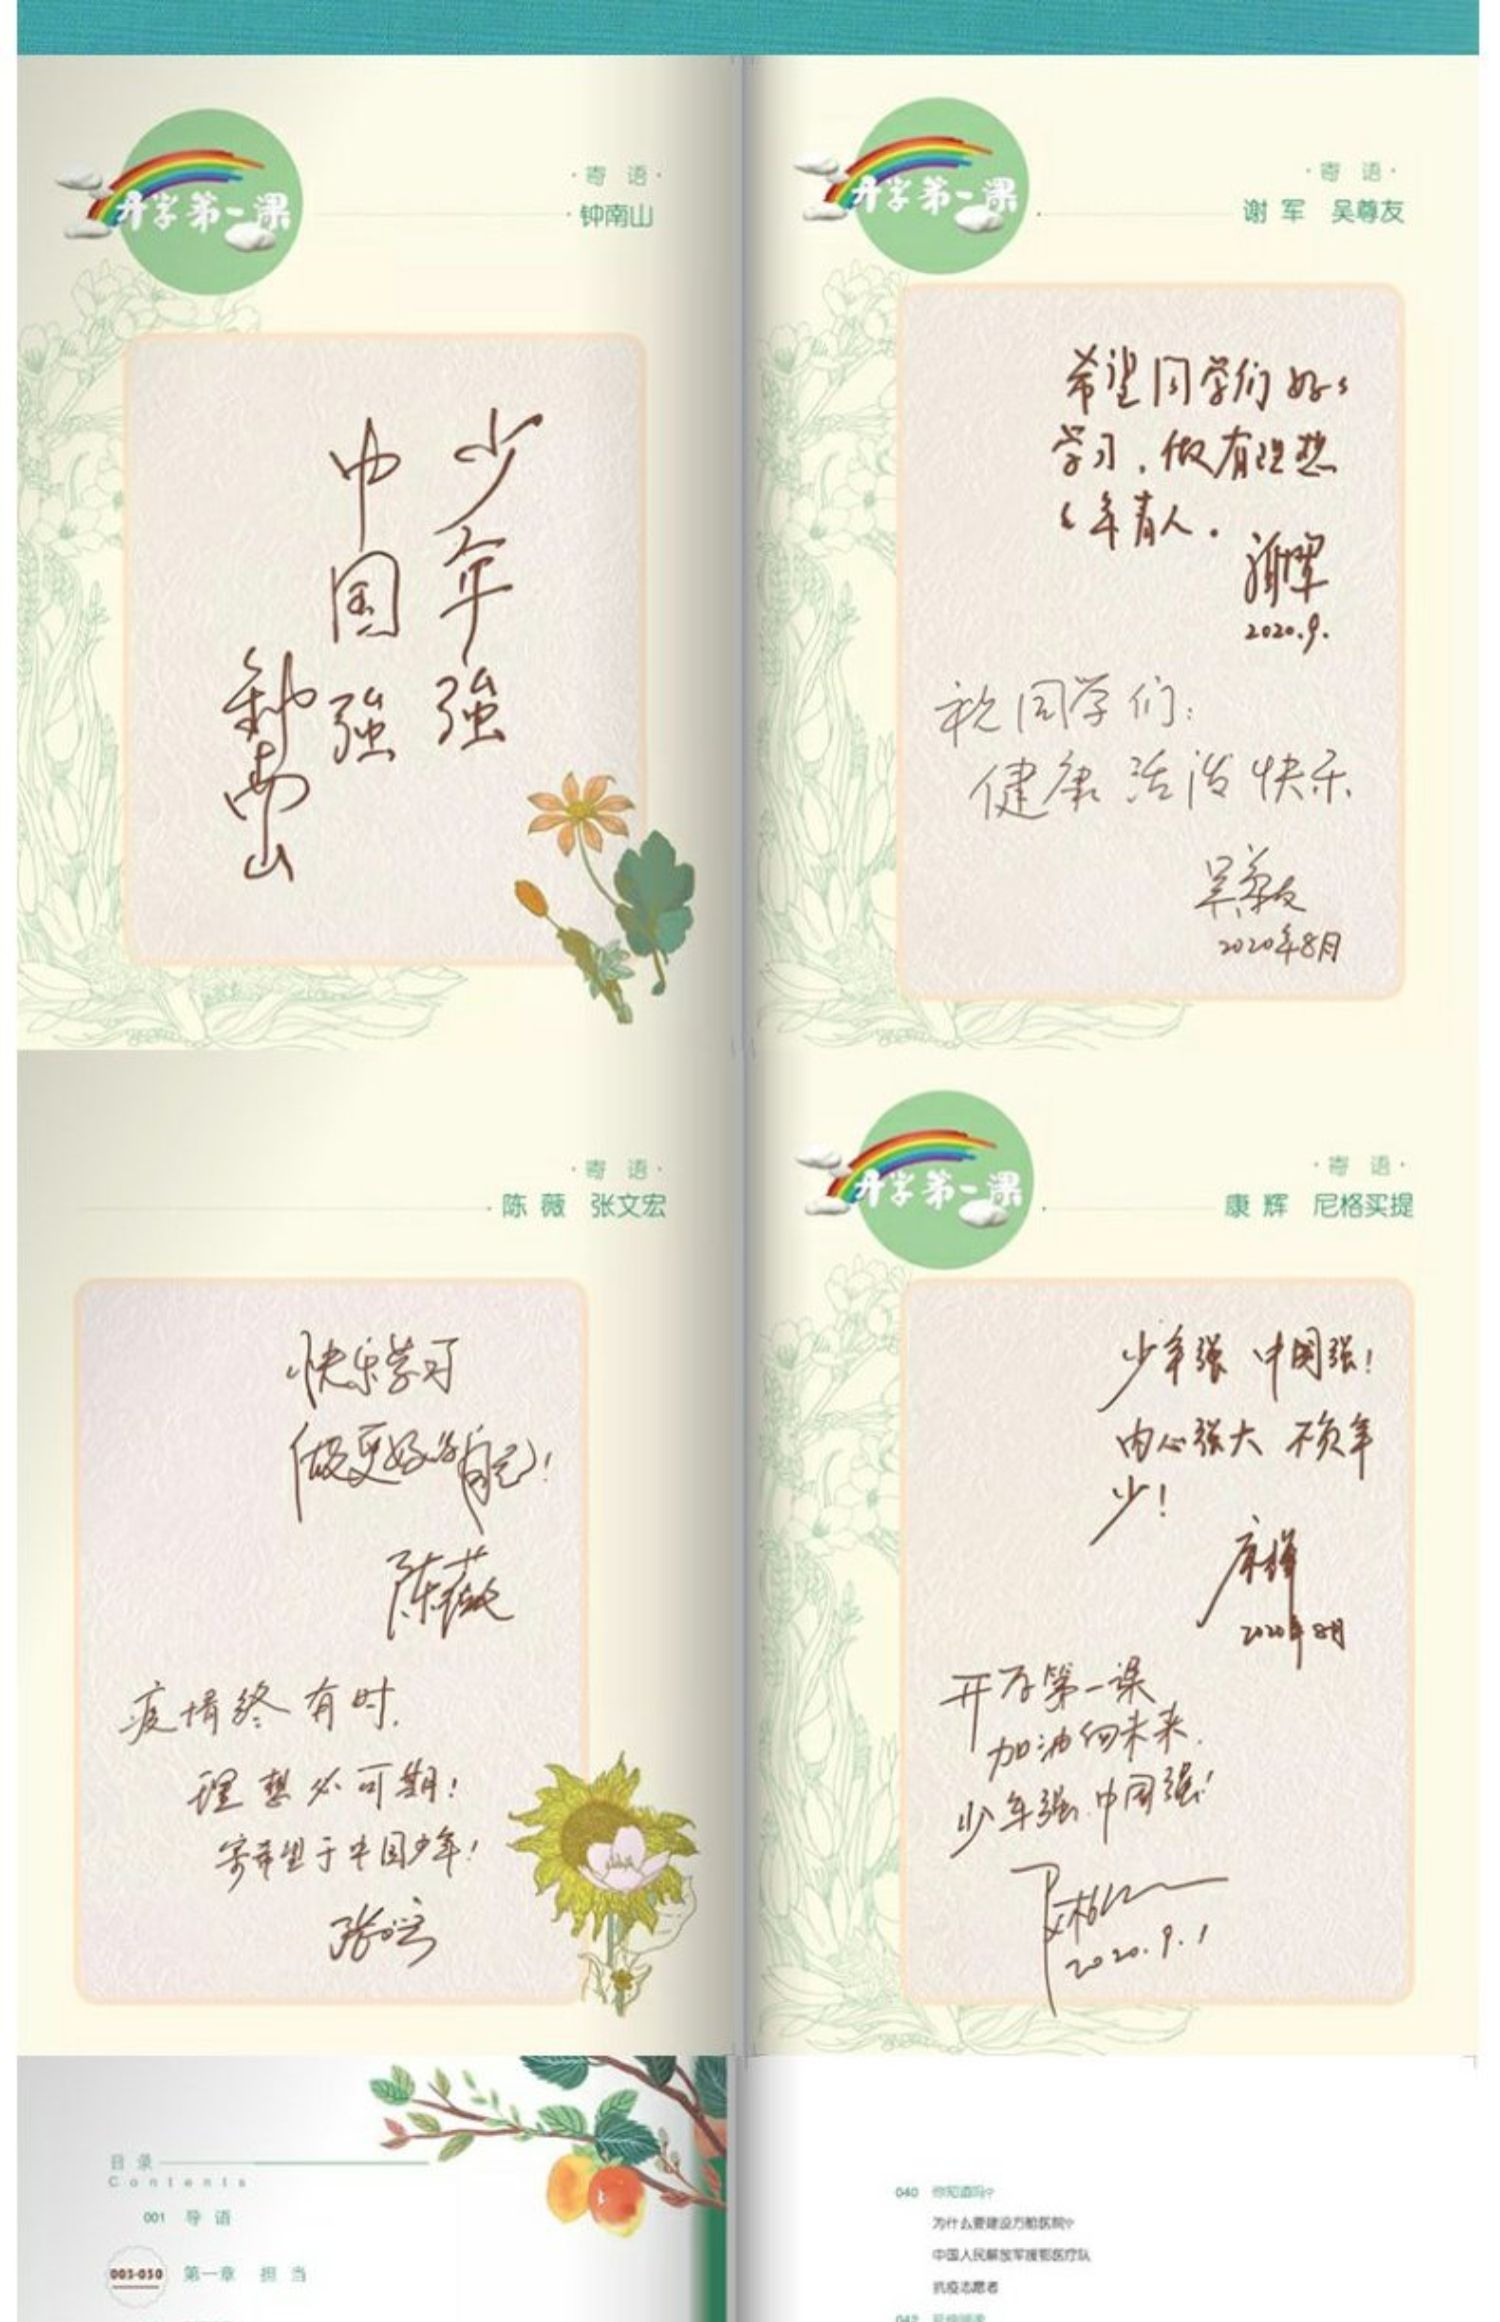 开学第一课
·寄 语·
·钟南山
少年強
中国強
钟南山
开学第一课
·寄 语·
谢 军 吴尊友
希望同学们好〻
学习，做有理想
的年青人。
谢军
2020.9.
祝同学们：
健康活泼快乐
吴尊友
2020年8月
·寄 语·
·陈 薇 张文宏
快乐学习
做更好的自己！
陈薇
疫情终有时，
理想必可期！
寄希望于中国少年！
张文宏
开学第一课
·寄 语·
康 辉 尼格买提
少年强 中国强！
内心强大 不负年
少！
康辉
2020年8月
开学第一课
加油向未来
少年强 中国强！
尼格买提
2020.9.1
目录
Contents
001 导 语
003-030 第一章 担 当
040 你知道吗？
为什么要建设方舱医院？
中国人民解放军援鄂医疗队
抗疫志愿者
042 延伸阅读